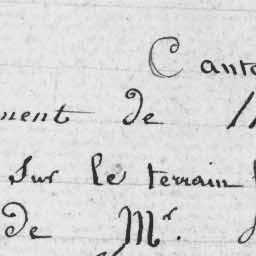 Canto
ment de
Sur le terrain
de Mr.